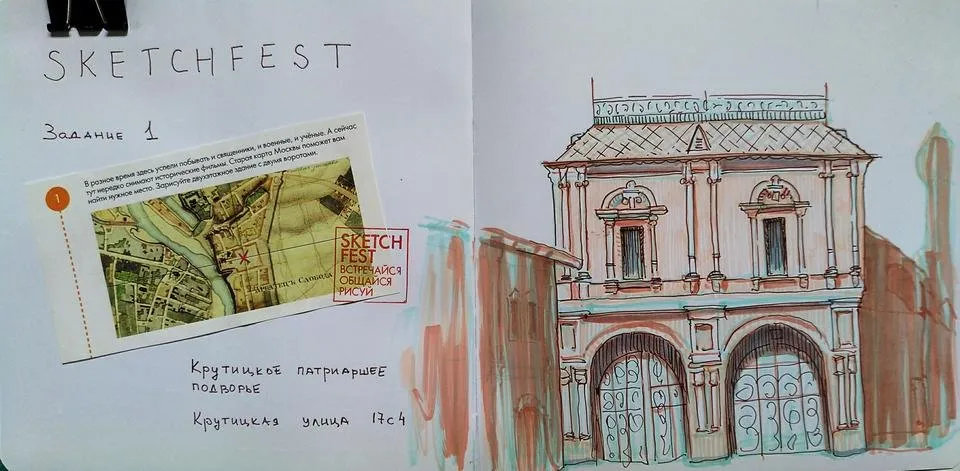 SKETCHFEST
Задание 1
1
В разное время здесь успели побывать и священники, и военные, и учёные. А сейчас
тут нередко снимают исторические фильмы. Старая карта Москвы поможет вам
найти нужное место. Зарисуйте двухэтажное здание с двумя воротами.
SKETCH
FEST
ВСТРЕЧАЙСЯ
ОБЩАЙСЯ
РИСУЙ
Крутицкое патриаршее
подворье
Крутицкая улица 17с4